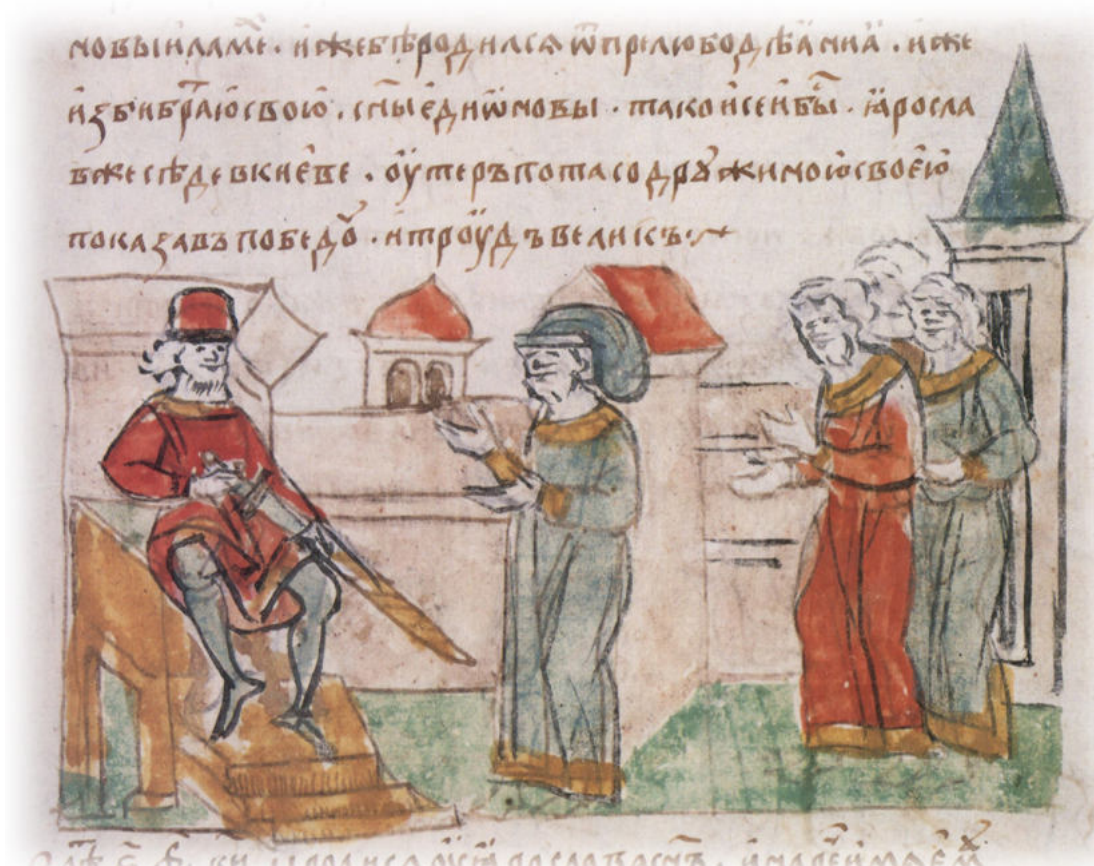 мовыи ламе҇ . иже бѣ родилсѧ ѿ прелюбодѣѧниѧ . иже
изби братїю свою . сн҃ы едиѡновы . тако и сеи бы҇ . ꙗросла
вже сѣде в киеве . оутеръ пота со дрꙋжиною своею
показавъ победоу . и троудъ великъ